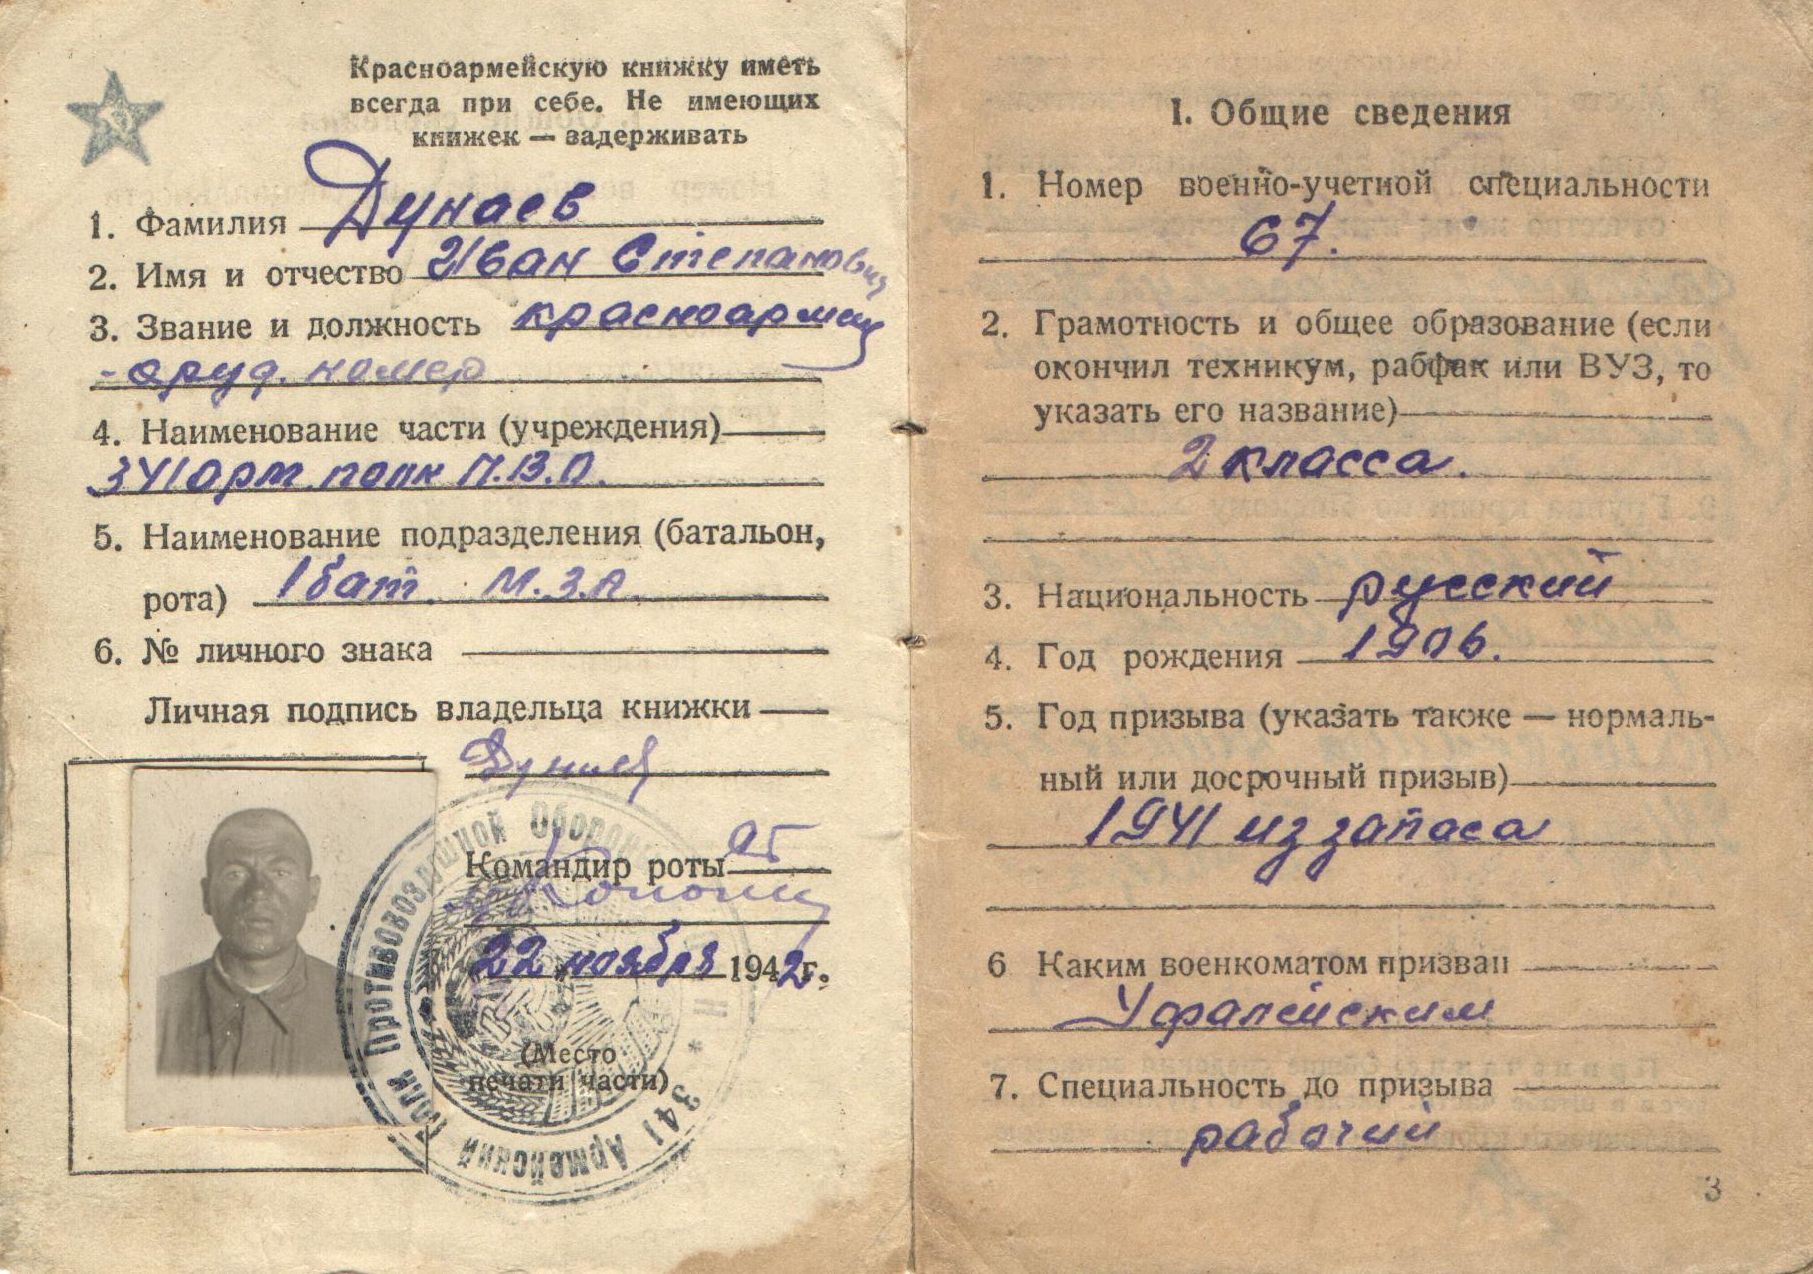 Красноармейскую книжку иметь
всегда при себе. Не имеющих
книжек — задерживать
1. Фамилия Дунаев
2. Имя и отчество Иван Степанович
3. Звание и должность красноармеец
- оруд. номер
4. Наименование части (учреждения)
341 арт. полк П.В.О.
5. Наименование подразделения (батальон,
рота) 1 бат. М.З.А.
6. № личного знака
Личная подпись владельца книжки
Дунаев
Командир роты
22 ноября 1942 г.
(Место
печати части)
341 Армейский Полк Противовоздушной Обороны
I. Общие сведения
1. Номер военно-учетной специальности
67.
2. Грамотность и общее образование (если
окончил техникум, рабфак или ВУЗ, то
указать его название)
2 класса.
3. Национальность русский
4. Год рождения 1906.
5. Год призыва (указать также — нормаль-
ный или досрочный призыв)
1941 из запаса
6 Каким военкоматом призван
Уфалейским
7. Специальность до призыва
рабочий
3